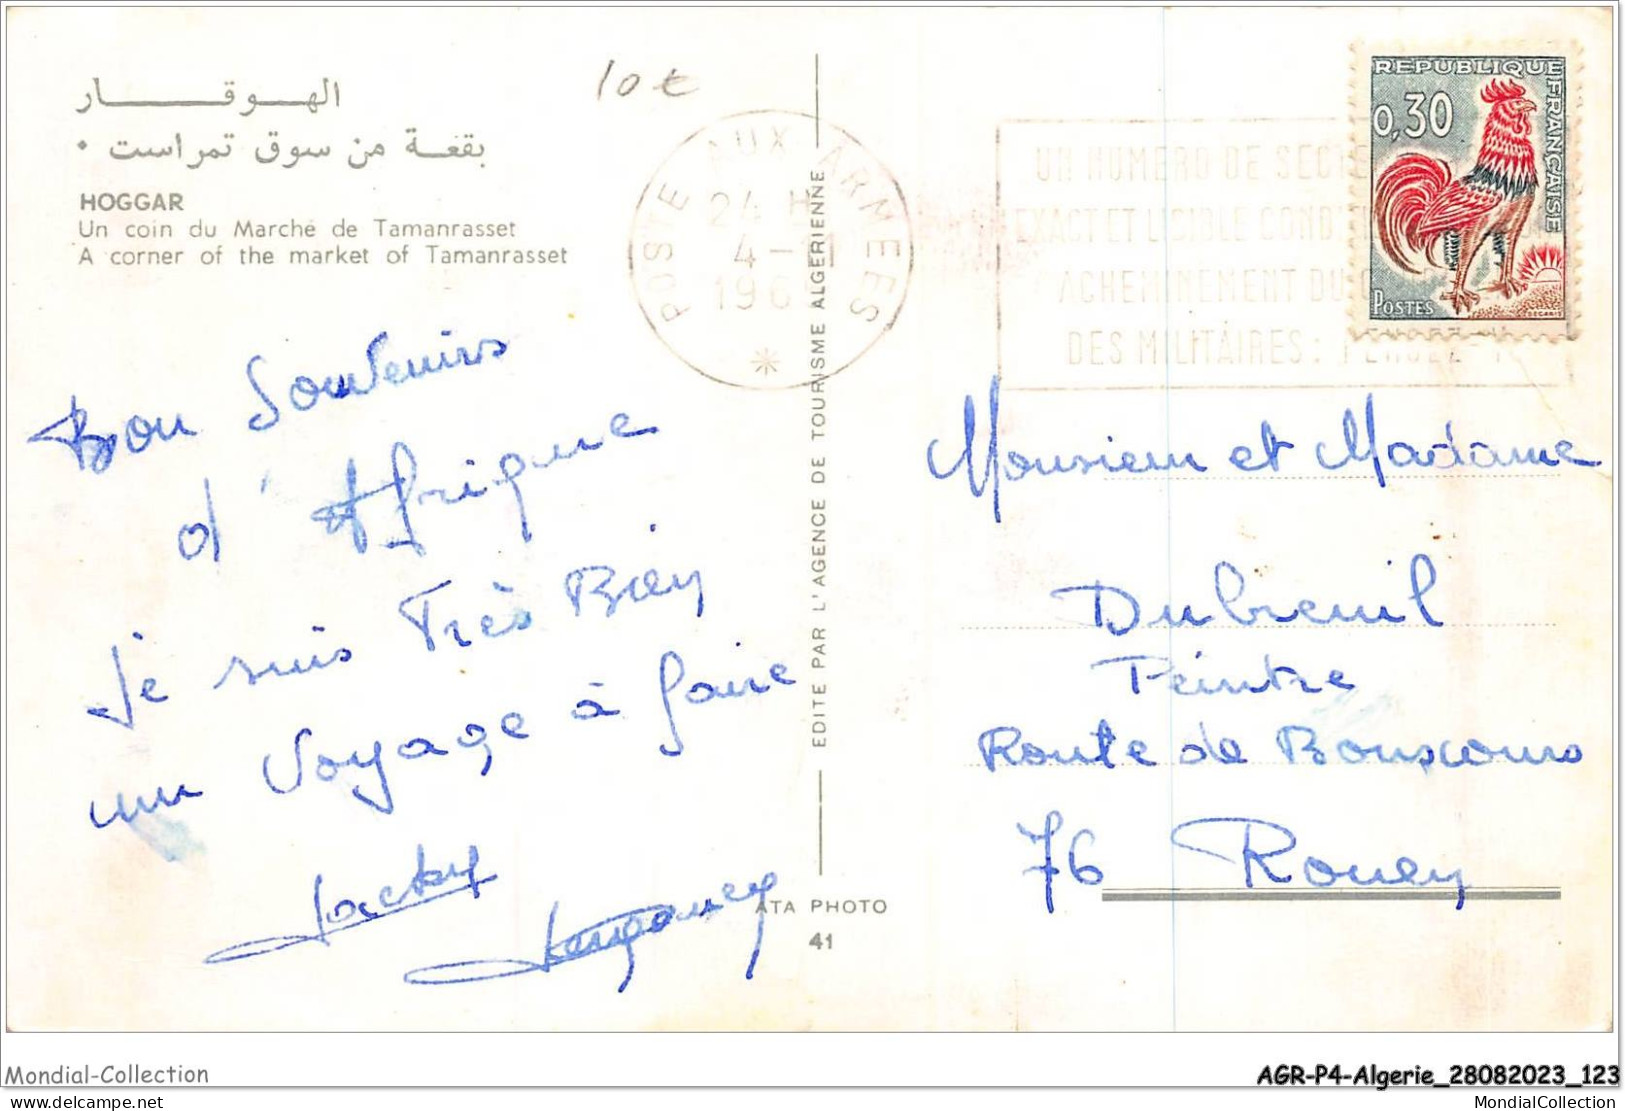 الهوقار
بقعة من سوق تمراست •
HOGGAR
Un coin du Marché de Tamanrasset
A corner of the market of Tamanrasset
10 €
POSTE AUX ARMEES
24 H
4 - 11
196
UN NUMERO DE SECTE
EXACT ET LISIBLE CONDI
ACHEMINEMENT DU
DES MILITAIRES :
REPUBLIQUE FRANÇAISE
0,30
POSTES
DECARIS
Bon Souvenirs
d'Afrique
Je suis Très Bien
un Voyage à faire
Jacky
EDITE PAR L'AGENCE DE TOURISME ALGERIENNE
ATA PHOTO
41
Monsieur et Madame
Dubreuil
Peintre
Route de Bonscours
76 Rouen
Mondial-Collection
AGR-P4-Algerie_28082023_123
delcampe.net
MondialCollection